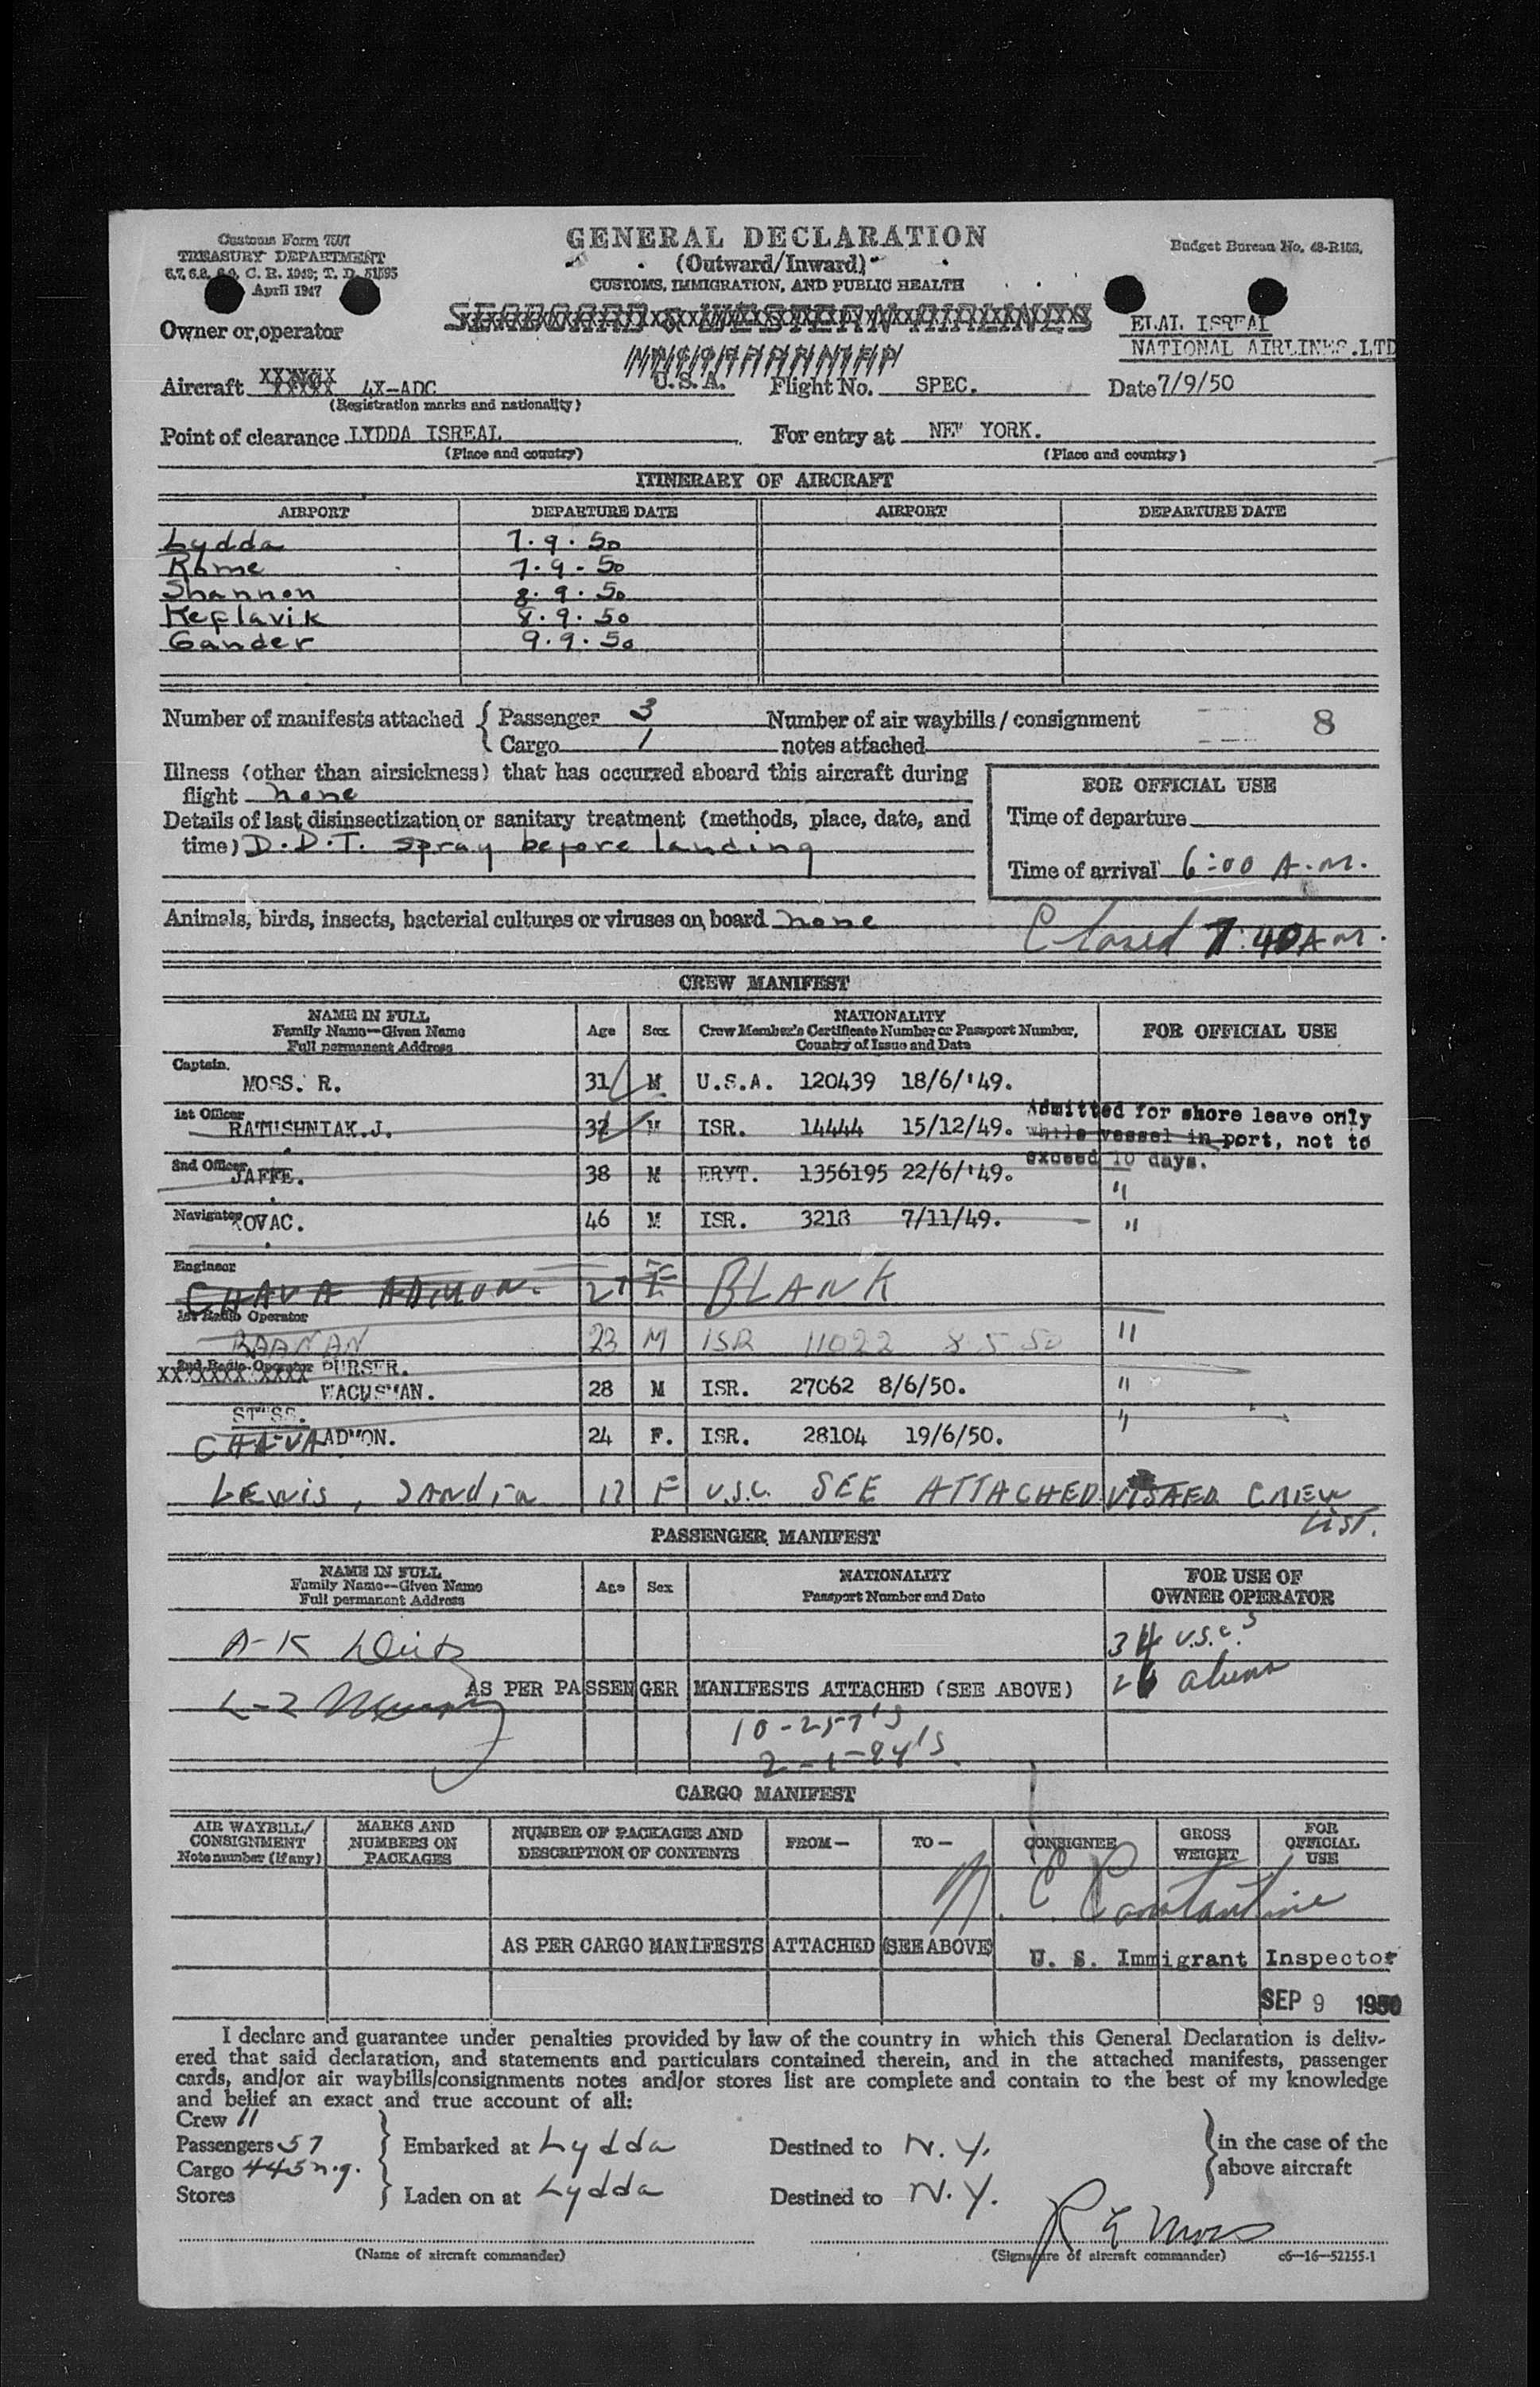 Customs Form 7507
TREASURY DEPARTMENT
April 1947
GENERAL DECLARATION
(Outward/Inward)
CUSTOMS, IMMIGRATION, AND PUBLIC HEALTH
Budget Bureau No.
Owner or operator
SEABOARD & WESTERN AIRLINES
ELAL ISREAL
NATIONAL AIRLINES.LTD
Aircraft 4X-ADC U.S.A. Flight No. SPEC. Date 7/9/50
(Registration marks and nationality)
Point of clearance LYDDA ISREAL For entry at NEW YORK.
(Place and country) (Place and country)
ITINERARY OF AIRCRAFT
AIRPORT DEPARTURE DATE AIRPORT DEPARTURE DATE
Lydda 7.9.50
Rome 7.9.50
Shannon 8.9.50
Keflavik 8.9.50
Gander 9.9.50
Number of manifests attached { Passenger 3 Number of air waybills / consignment 8
Cargo 1 notes attached
Illness (other than airsickness) that has occurred aboard this aircraft during
flight none
FOR OFFICIAL USE
Details of last disinsectization or sanitary treatment (methods, place, date, and
time) D.D.T. spray before landing
Time of departure
Time of arrival 6:00 A.M.
Animals, birds, insects, bacterial cultures or viruses on board none
Closed 7:40 A.M.
CREW MANIFEST
NAME IN FULL
Family Name—Given Name
Full permanent Address
Age Sex NATIONALITY
Crew Member's Certificate Number or Passport Number,
Country of Issue and Date
FOR OFFICIAL USE
Captain.
MOSS. R. 31 M U.S.A. 120439 18/6/'49.
1st Officer
RATUSHNIAK.J. M ISR. 14444 15/12/49.
Admitted for shore leave only
while vessel in port, not to
exceed 10 days.
2nd Officer
JAFFE. 38 M 1356195 22/6/'49. "
Navigator
KOVAC. 46 M ISR. 3218 7/11/49. "
Engineer
CHAVA ADMON. 27 F BLANK
1st Radio Operator
RAANAN 23 M ISR 11022 8 5 50 "
2nd Radio Operator PURSER.
WACHSMAN. 28 M ISR. 27062 8/6/50. "
STWSS.
CHAVA ADMON. 24 F. ISR. 28104 19/6/50. "
Lewis, Sandra F U.S.C. SEE ATTACHED VISAED CREW
LIST.
PASSENGER MANIFEST
NAME IN FULL
Family Name—Given Name
Full permanent Address
Age Sex NATIONALITY
Passport Number and Date
FOR USE OF
OWNER OPERATOR
A-K
34 U.S.C.'s
L-Z Murphy
AS PER PASSENGER MANIFESTS ATTACHED (SEE ABOVE)
26 aliens
10-257's
CARGO MANIFEST
AIR WAYBILL/
CONSIGNMENT
Note number (if any)
MARKS AND
NUMBERS ON
PACKAGES
NUMBER OF PACKAGES AND
DESCRIPTION OF CONTENTS
FROM— TO— CONSIGNEE
GROSS
WEIGHT
FOR
OFFICIAL
USE
Constantine
AS PER CARGO MANIFESTS ATTACHED (SEE ABOVE)
U. S. Immigrant Inspector
SEP 9 1950
I declare and guarantee under penalties provided by law of the country in which this General Declaration is deliv-
ered that said declaration, and statements and particulars contained therein, and in the attached manifests, passenger
cards, and/or air waybills/consignments notes and/or stores list are complete and contain to the best of my knowledge
and belief an exact and true account of all:
Crew 11
Passengers 57 Embarked at Lydda Destined to N.Y. in the case of the
Cargo 445 above aircraft
Stores Laden on at Lydda Destined to N.Y.
R E Moss
(Name of aircraft commander) (Signature of aircraft commander) c6—16—52255-1